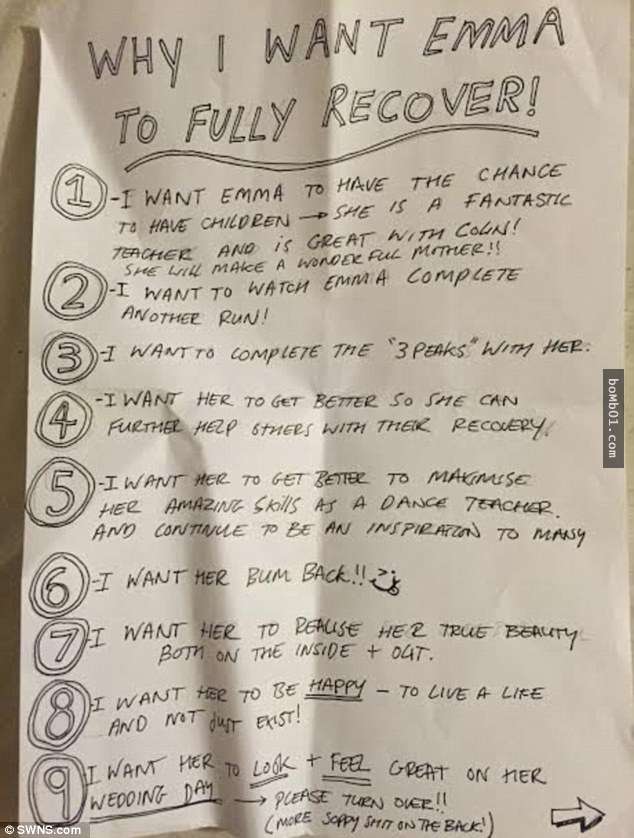 WHY I WANT EMMA
TO FULLY RECOVER!
1 -I WANT EMMA TO HAVE THE CHANCE
TO HAVE CHILDREN → SHE IS A FANTASTIC
TEACHER AND is GREAT WITH COLIN!
SHE WILL MAKE A WONDERFUL MOTHER!!
2 -I WANT TO WATCH EMMA COMPLETE
ANOTHER RUN!
3 -I WANT TO COMPLETE THE "3 PEAKS" WITH HER.
4 -I WANT HER TO GET BETTER SO SHE CAN
FURTHER HELP OTHERS WITH THEIR RECOVERY!
5 -I WANT HER TO GET BETTER TO MAXIMISE
HER AMAZING SKILLS AS A DANCE TEACHER.
AND CONTINUE TO BE AN INSPIRATION TO MANY
6 -I WANT HER BUM BACK!!
7 -I WANT HER TO REALISE HER TRUE BEAUTY
BOTH ON THE INSIDE + OUT.
8 -I WANT HER TO BE HAPPY – TO LIVE A LIFE
AND NOT JUST EXIST!
9 -I WANT HER TO LOOK + FEEL GREAT ON HER
WEDDING DAY → PLEASE TURN OVER!!
(MORE SOPPY SHIT ON THE BACK!)
bomb01.com
© SWNS.com